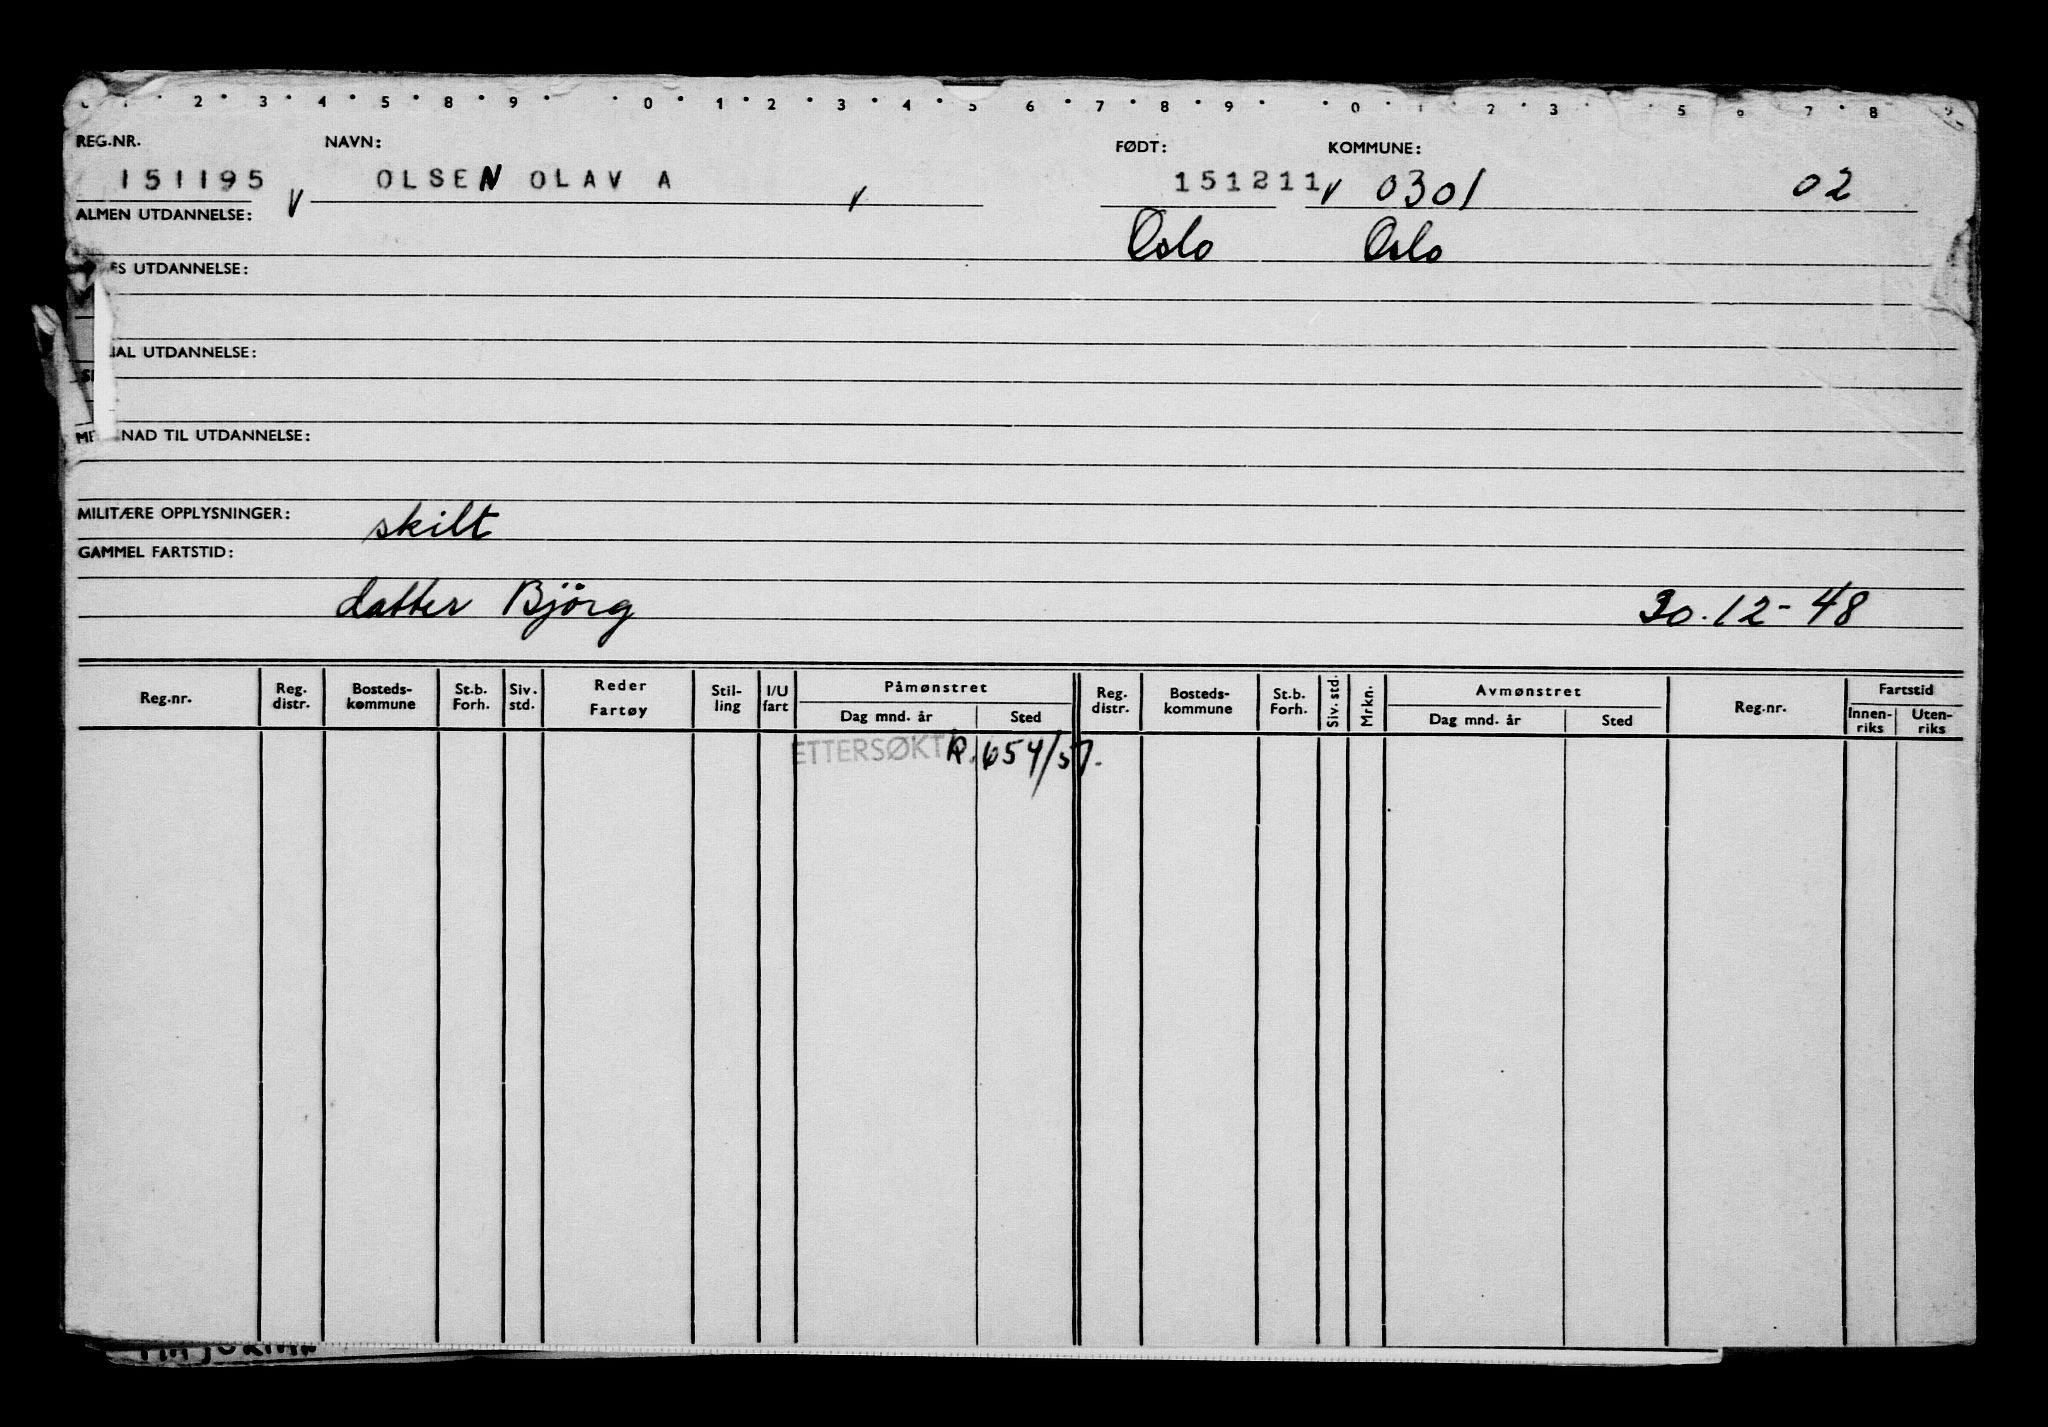 1 2 3 4 5 8 9 0 1 2 3 4 5 6 7 8 9 0 1 2 3 5 6 7 8 9
REG.NR. NAVN: FØDT: KOMMUNE:
151195 v OLSEN OLAV A v 151211 v 0301 02
ALMEN UTDANNELSE: Oslo Oslo
UTDANNELSE:
UTDANNELSE:
TIL UTDANNELSE:
MILITÆRE OPPLYSNINGER: skilt
GAMMEL FARTSTID:
datter Björg 30.12-48
Reg.nr. Reg. distr. Bosteds- kommune St.b. Forh. Siv. std. Reder Fartøy Stil- ling I/U fart Påmønstret Dag mnd. år Sted Reg. distr. Bosteds- kommune St.b. Forh. Siv. std. Mrkn. Avmønstret Dag mnd. år Sted Reg.nr. Fartstid Innen- riks Uten- riks
ETTERSØKT R. 654/57.